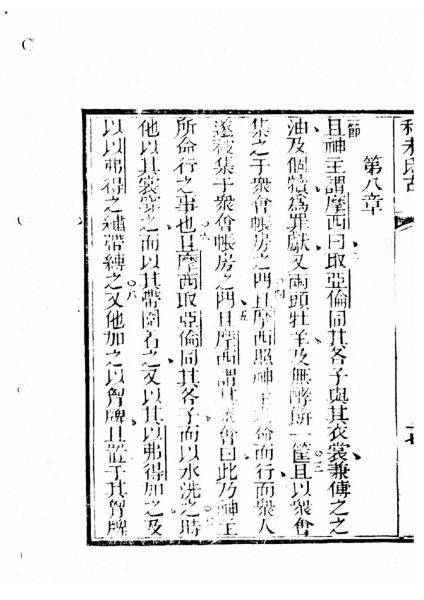 利未氏古
第八章
節 且神主謂摩西曰取亞倫同其各子與其衣裳兼傅之之
油及個犢為罪獻又兩頭牡羊及無酵餅一筐且以眾會
集之于眾會帳房之門且摩西照神主之命而行而眾人
遂被集于眾會帳房之門且摩西謂其眾會曰此乃神主
所命行之事也且摩西取亞倫同其各子而以水洗之時
他以其裳穿之而以其帶圍着之又以其以弗得加之及
以以弗得之繡帶縛之又他加之以胷牌且置于其胷牌